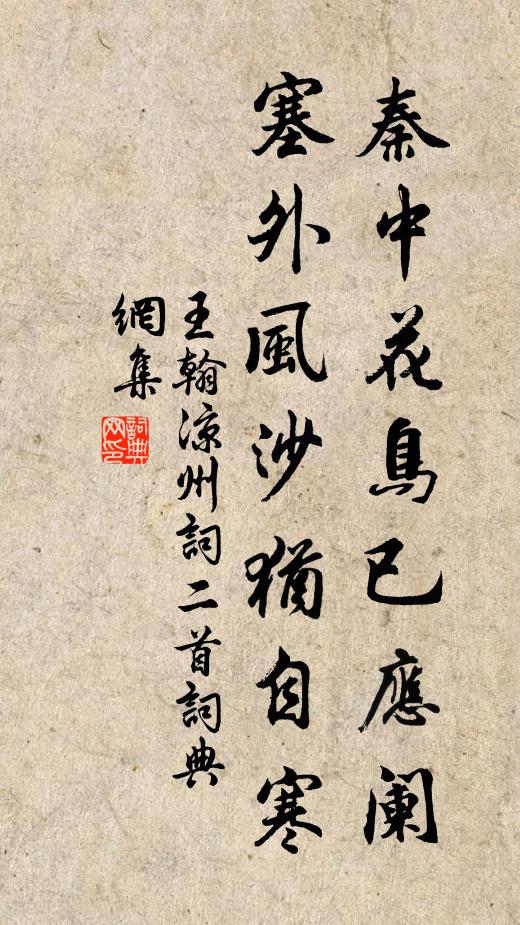 秦中花鳥已應闌
塞外風沙猶自寒
王翰凉州詞二首詞典
網集
詞典
网印